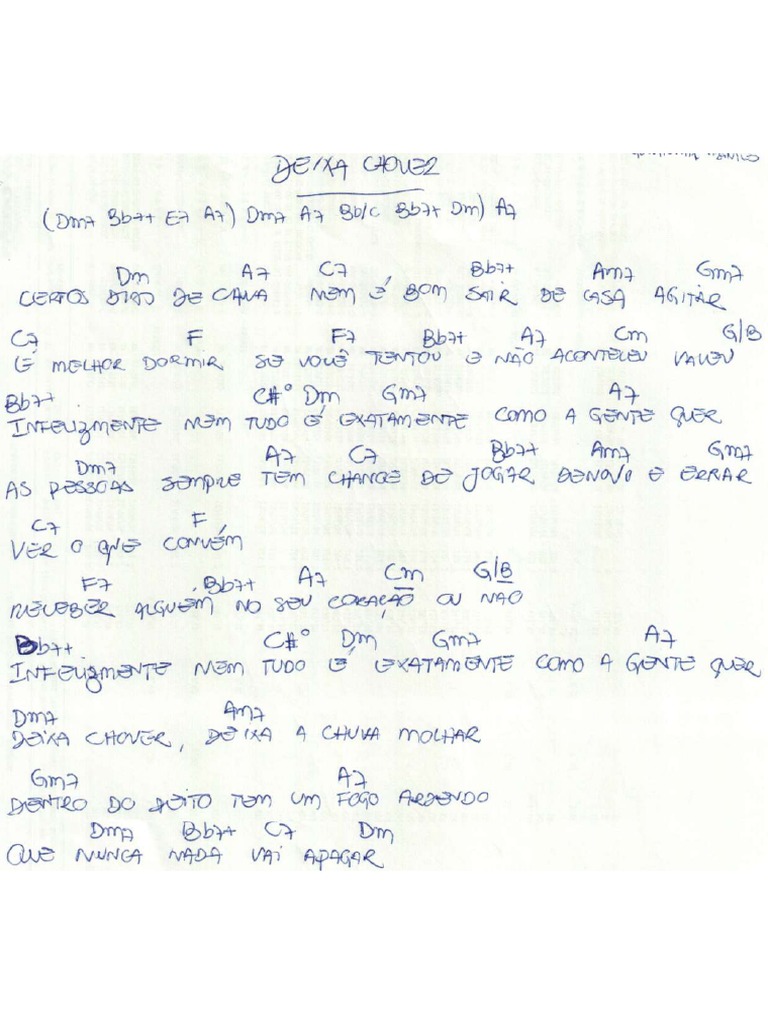 DEIXA CHOVER
(Dm7 Bb7+ E7 A7) Dm7 A7 Bb/C Bb7+ Dm) A7
Dm A7 C7 Bb7+ Am7 Gm7
CERTOS DIAS DE CHUVA NEM É BOM SAIR DE CASA AGITAR
C7 F F7 Bb7+ A7 Cm G/B
É MELHOR DORMIR SE VOCÊ TENTOU E NÃO ACONTECEU VALEU
Bb7+ C#° Dm Gm7 A7
INFELIZMENTE NEM TUDO É EXATAMENTE COMO A GENTE QUER
Dm7 A7 C7 Bb7+ Am7 Gm7
AS PESSOAS SEMPRE TEM CHANCE DE JOGAR DENOVO E ERRAR
C7 F
VER O QUE CONVÉM
F7 Bb7+ A7 Cm G/B
RECEBER ALGUÉM NO SEU CORAÇÃO OU NÃO
Bb7+ C#° Dm Gm7 A7
INFELIZMENTE NEM TUDO É EXATAMENTE COMO A GENTE QUER
Dm7 Am7
DEIXA CHOVER, DEIXA A CHUVA MOLHAR
Gm7 A7
DENTRO DO PEITO TEM UM FOGO ARDENDO
Dm7 Bb7+ C7 Dm
QUE NUNCA NADA VAI APAGAR